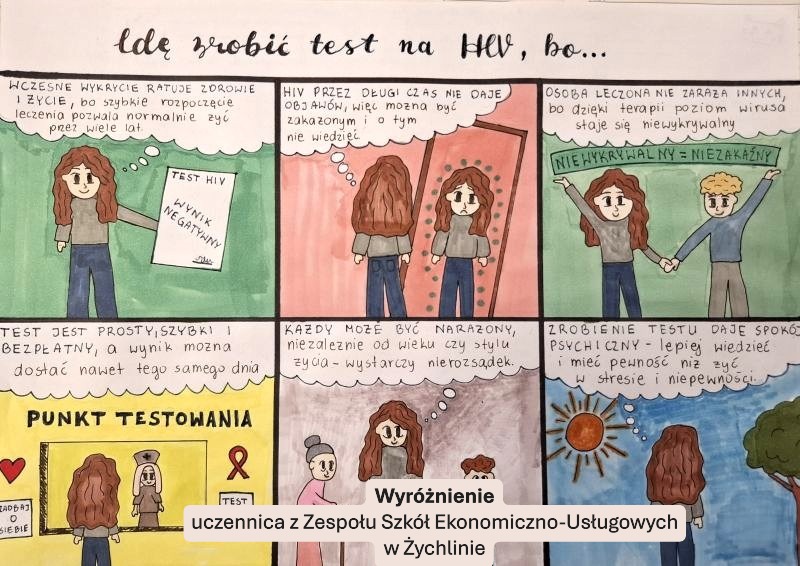 Idę zrobić test na HIV, bo...
WCZESNE WYKRYCIE RATUJE ZDROWIE
I ŻYCIE, bo szybkie rozpoczęcie
leczenia pozwala normalnie żyć
przez wiele lat.
TEST HIV
WYNIK
NEGATYWNY
HIV PRZEZ DŁUGI CZAS NIE DAJE
OBJAWÓW, więc można być
zakażonym i o tym
nie wiedzieć
OSOBA LECZONA NIE ZARAŻA INNYCH,
bo dzięki terapii poziom wirusa
staje się niewykrywalny
NIEWYKRYWALNY = NIEZAKAŹNY
TEST JEST PROSTY, SZYBKI I
BEZPŁATNY, a wynik można
dostać nawet tego samego dnia
PUNKT TESTOWANIA
ZADBAJ
O
SIEBIE
TEST
KAŻDY MOŻE BYĆ NARAŻONY,
niezależnie od wieku czy stylu
życia - wystarczy nierozsądek.
ZROBIENIE TESTU DAJE SPOKÓJ
PSYCHICZNY - lepiej wiedzieć
i mieć pewność niż żyć
w stresie i niepewności.
Wyróżnienie
uczennica z Zespołu Szkół Ekonomiczno-Usługowych
w Żychlinie